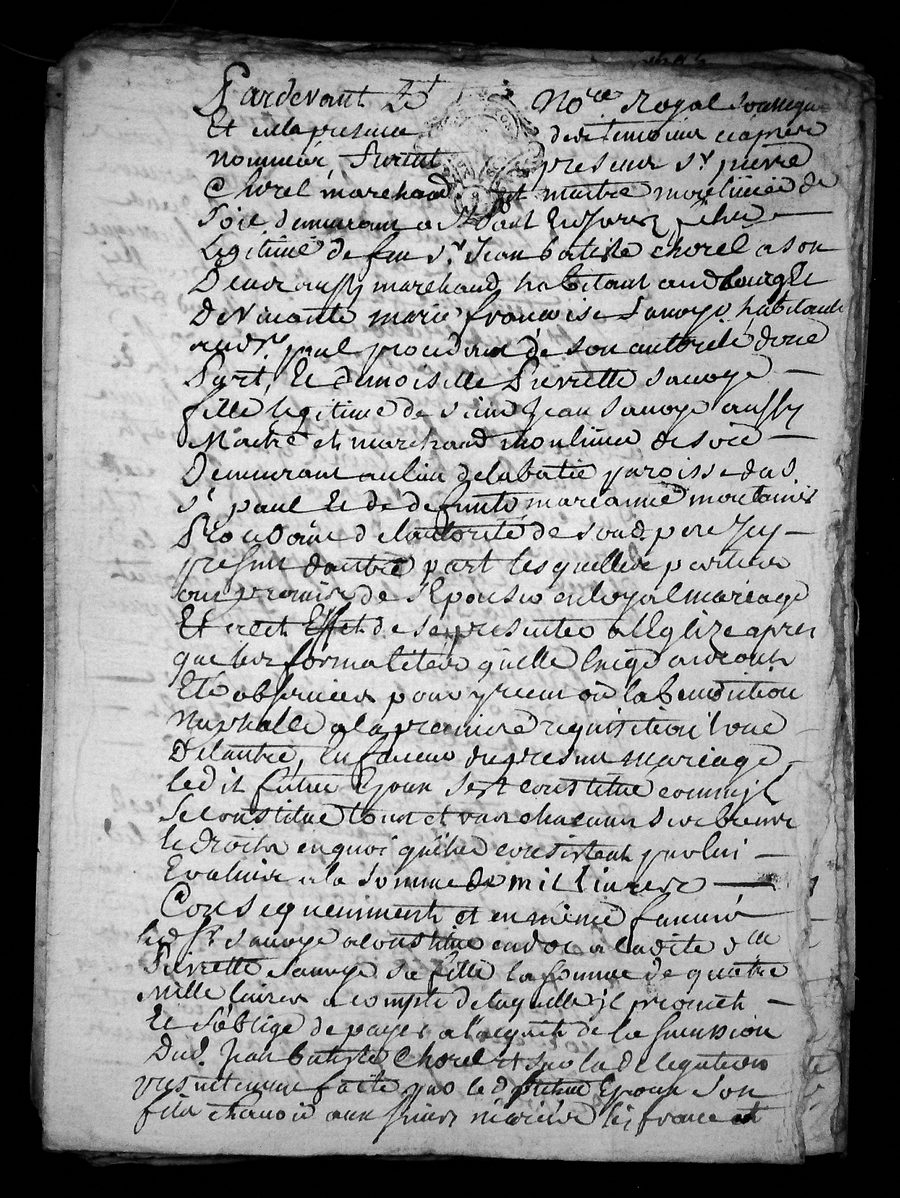 Pardevant Le No.re Royal soussigné
Et en la presence des temoins ci apres
nommés furent presens S.r pierre
Chorel marchand et maitre moulinier de
soie demeurant a St
Legitime de feu S.r Jean Batiste Chorel a son
Deces aussy marchand habitant au d bourg Et
De vivante marie francoise Sauvage habitante
aud. St. paul procedant de son autorité d'une
Part, Et demoiselle Pierrette Sauvage
fille legitime de Sieur Jean Sauvage aussy
Maitre et marchand moulinier de soie
Demeurant au lieu de la batie paroisse dud.
St. paul Et de defunte marianne
Procedante de l'autorité de son d. pere icy
present d'autre part lesquelles parties
ont promis de s'Epouser en loyal mariage
Et a cet Effet de se presenter a l'Eglize apres
que les formalites qu'elle Exige auront
Eté observées pour y recevoir la Benediction
Nuptialle a la premiere requisition l'une
De l'autre, En faveur du present mariage
Ledit futur Epoux s'est constitué comme il
se constitue tous et uns chacuns ses biens
Et droits en quoi qu'ils consistent par lui
Evalués a la somme de mil livres
Consequemment et en meme faveur
led. Sr. Sauvage a constitué en dot a ladite d.lle
Pierrette Sauvage sa fille la somme de quatre
mille livres a compte de laquelle il promet
Et s'oblige de payer a l'acquit de la succession
Dud. Jean Batiste Chorel et sur la delegation
presentement faite par le d. futur Epoux son
fils